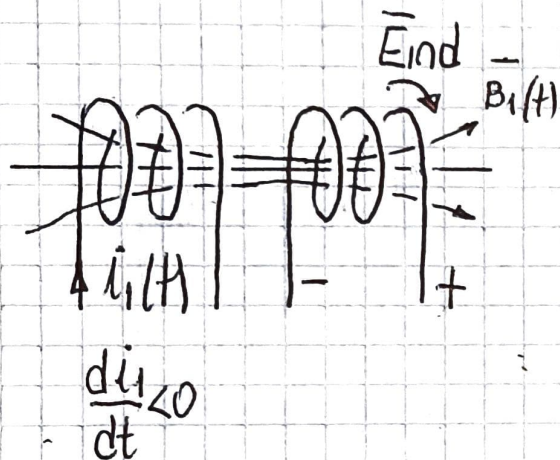 E̅ind
B̅₁(t)
i₁(t)
- +
di₁/dt <0